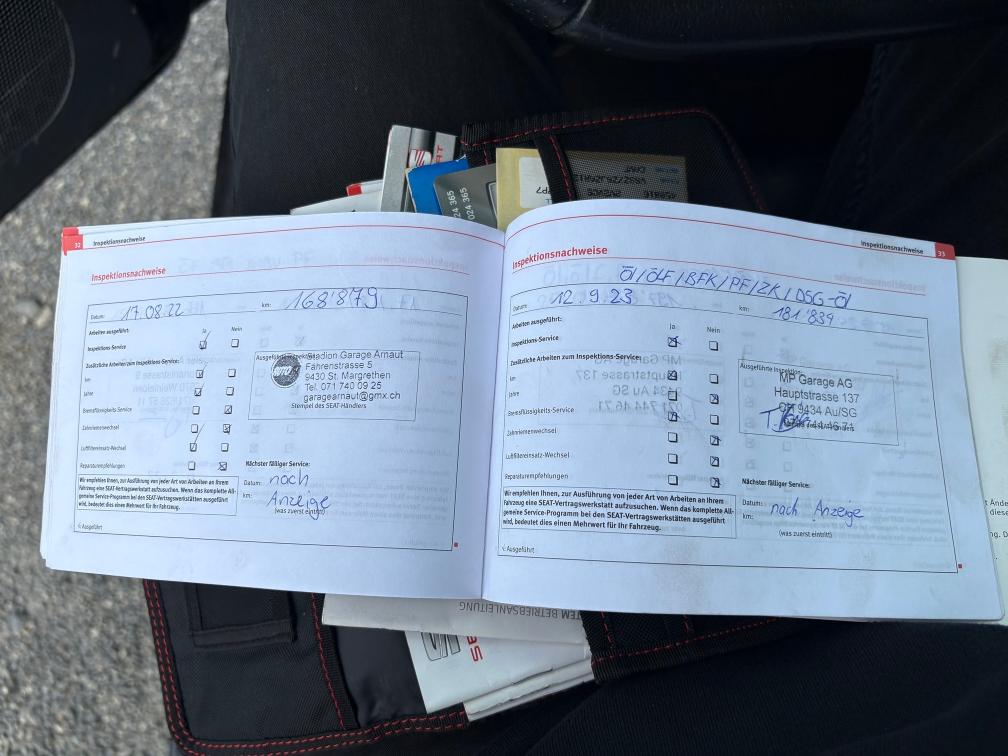 32 Inspektionsnachweise
Inspektionsnachweise
Datum: 17.08.22 km: 168'879
Arbeiten ausgeführt: Ja Nein
Inspektions-Service
Zusätzliche Arbeiten zum Inspektions-Service:
km
Jahre
Bremsflüssigkeits-Service
Zahnriemenwechsel
Luftfiltereinsatz-Wechsel
Reparaturempfehlungen
Stadion Garage Arnaut
Fahrenstrasse 5
9430 St. Margrethen
Tel. 071 740 09 25
garagearnaut@gmx.ch
Stempel des SEAT-Händlers
Nächster fälliger Service:
Datum: nach
km: Anzeige
(was zuerst eintritt)
Wir empfehlen Ihnen, zur Ausführung von jeder Art von Arbeiten an Ihrem
Fahrzeug eine SEAT-Vertragswerkstatt aufzusuchen. Wenn das komplette All-
gemeine Service-Programm bei den SEAT-Vertragswerkstätten ausgeführt
wird, bedeutet dies einen Mehrwert für Ihr Fahrzeug.
Ausgeführt
Inspektionsnachweise 33
Inspektionsnachweise
Öl/ÖLF/BFK/PF/ZK/DSG-Öl
Datum: 12.9.23 km: 181'839
Arbeiten ausgeführt: Ja Nein
Inspektions-Service
Zusätzliche Arbeiten zum Inspektions-Service:
km
Jahre
Bremsflüssigkeits-Service
Zahnriemenwechsel
Luftfiltereinsatz-Wechsel
Reparaturempfehlungen
Ausgeführte Inspektion
MP Garage AG
Hauptstrasse 137
CH 9434 Au/SG
744 46 71
Nächster fälliger Service:
Datum: nach Anzeige
km:
(was zuerst eintritt)
Wir empfehlen Ihnen, zur Ausführung von jeder Art von Arbeiten an Ihrem
Fahrzeug eine SEAT-Vertragswerkstatt aufzusuchen. Wenn das komplette All-
gemeine Service-Programm bei den SEAT-Vertragswerkstätten ausgeführt
wird, bedeutet dies einen Mehrwert für Ihr Fahrzeug.
Ausgeführt
024 365
024 365
TEM BETRIEBSANLEITUNG